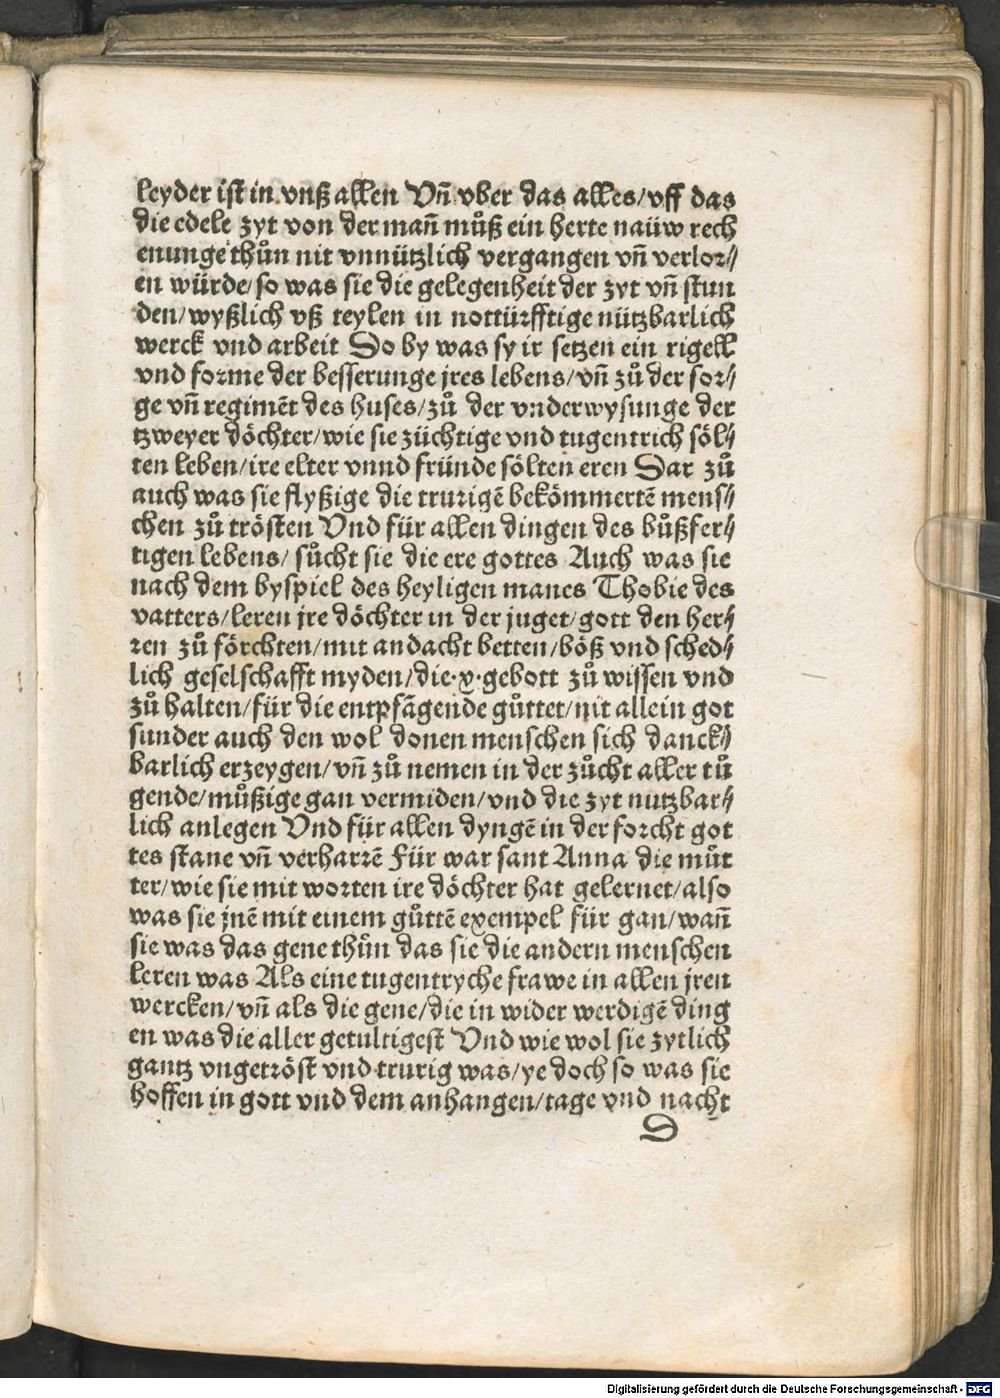 leyder ist in vnß allen Vñ vber das alles/vff das
die edele zyt von der mañ můß ein herte naüw rech
enunge thůn nit vnnützlich vergangen vñ verlor⸗
en würde/so was sie die gelegenheit der zyt vñ stun
den/wyßlich vß teylen in nottürfftige nützbarlich
werck vnd arbeit Do by was sy ir setzen ein rigell
vnd forme der besserunge jres lebens/vñ zů der sor⸗
ge vñ regimēt des huses/zů der vnderwysunge der
tzweyer döchter/wie sie züchtige vnd tugentrich söl⸗
ten leben/ire elter vnnd fründe sölten eren Dar zů
auch was sie flyßige die trurigē bekömmertē mens⸗
chen zů trösten Vnd für allen dingen des bůßfer⸗
tigen lebens/ sůcht sie die ere gottes Auch was sie
nach dem byspiel des heyligen manes Thobie des
vatters/leren jre döchter in der juget/gott den her⸗
ren zů förchten/mit andacht betten/böß vnd sched⸗
lich geselschafft myden/die·x·gebott zů wissen vnd
zů halten/für die entpfāgende gůttet/nit allein got
sunder auch den wol donen menschen sich danck⸗
barlich erzeygen/vñ zů nemen in der zůcht aller tů
gende/můßige gan vermiden/vnd die zyt nutzbar⸗
lich anlegen Vnd für allen dyngē in der forcht got
tes stane vñ verharrē Für war sant Anna die můt
ter/wie sie mit worten ire döchter hat gelernet/also
was sie jnē mit einem gůttē exempel für gan/wañ
sie was das gene thůn das sie die andern menschen
leren was Als eine tugentryche frawe in allen jren
wercken/vñ als die gene/die in wider werdigē ding
en was die aller getultigest Vnd wie wol sie zytlich
gantz vngetröst vnd trurig was/ye doch so was sie
hoffen in gott vnd dem anhangen/tage vnd nacht
D
Digitalisierung gefördert durch die Deutsche Forschungsgemeinschaft - DFG